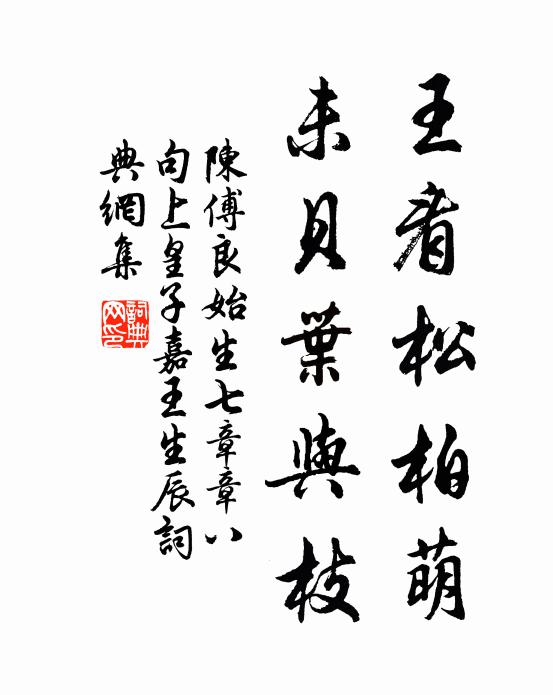 王看松柏萌
未見葉與枝
陳傅良始生七章章八
句上皇子嘉王生辰詞
典網集
詞典
网印